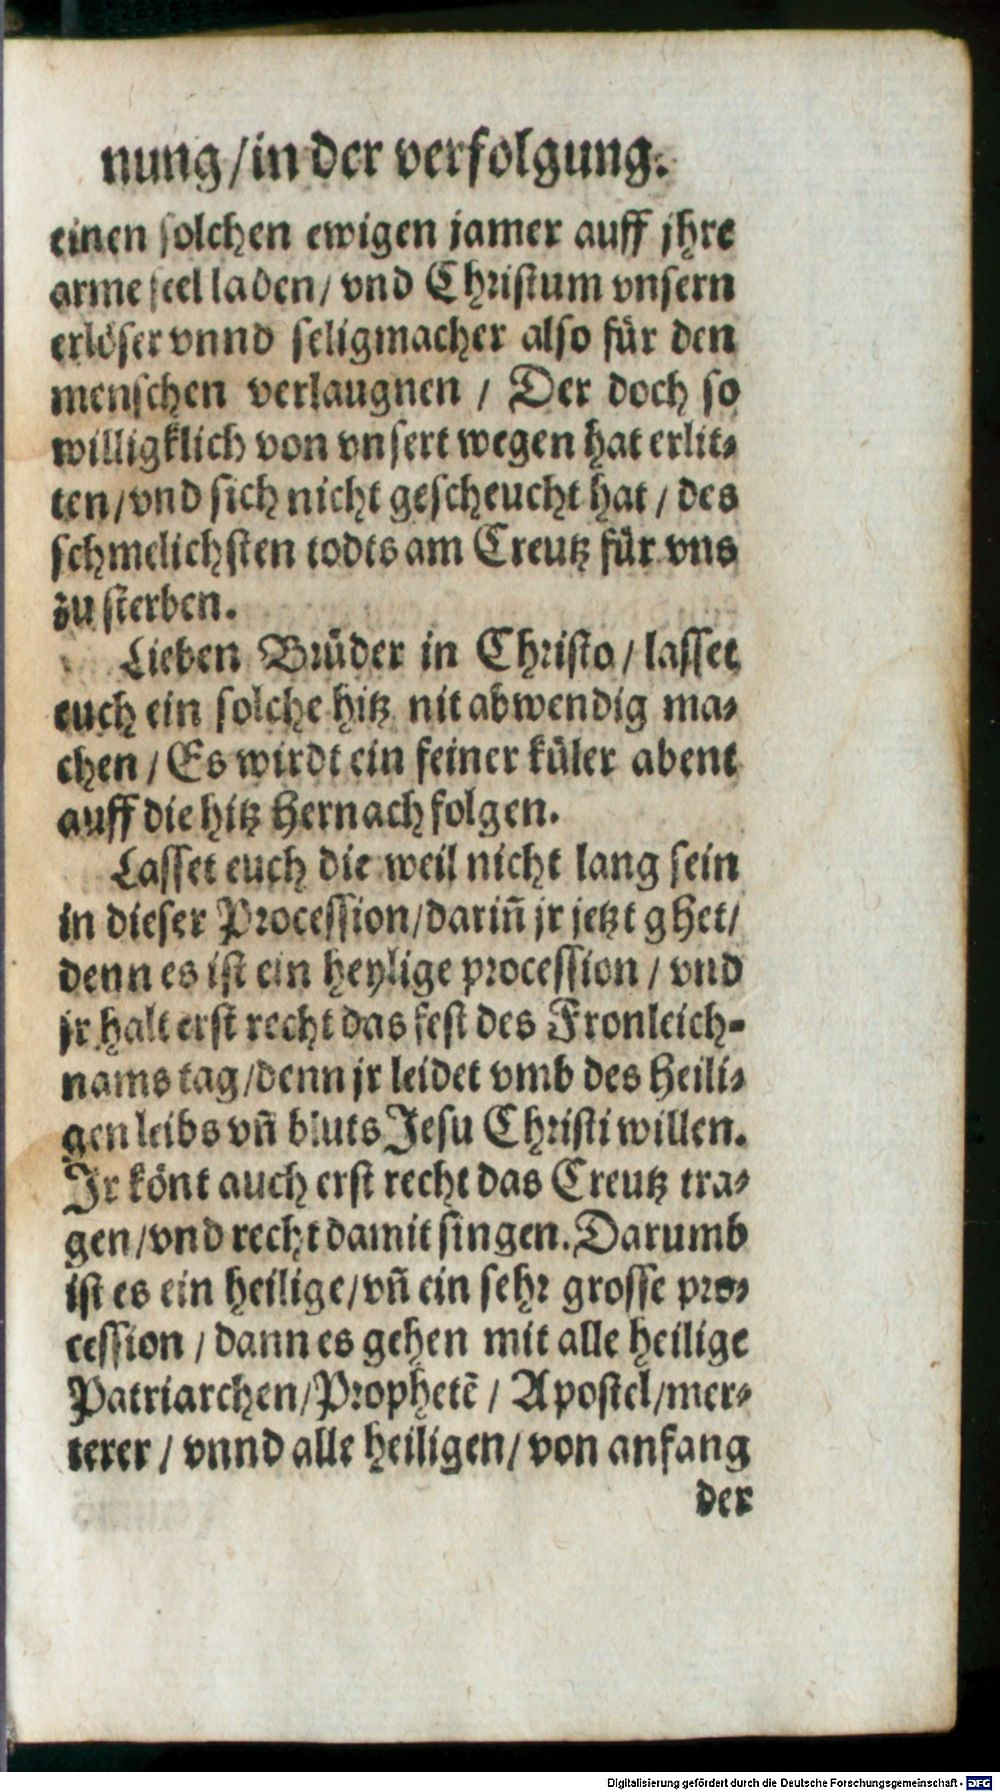 nung/in der verfolgung.
einen solchen ewigen jamer auff jhre
arme seel laden/ vnd Christum vnsern
erlöser vnnd seligmacher also für den
menschen verlaugnen / Der doch so
willigklich von vnsert wegen hat erlit-
ten/vnd sich nicht gescheucht hat / des
schmelichsten todts am Creutz für vns
zu sterben.
Lieben Brüder in Christo/ lasset
euch ein solche hitz nit abwendig ma-
chen / Es wirdt ein feiner küler abent
auff die hitz hernach folgen.
Lasset euch die weil nicht lang sein
in dieser Procession/dariñ jr jetzt ghet/
denn es ist ein heylige procession / vnd
jr halt erst recht das fest des Fronleich-
nams tag/denn jr leidet vmb des heili-
gen leibs vñ bluts Jesu Christi willen.
Jr könt auch erst recht das Creutz tra-
gen/vnd recht damit singen. Darumb
ist es ein heilige/vñ ein sehr grosse pro-
cession / dann es gehen mit alle heilige
Patriarchen/Prophetē / Apostel/mer-
terer / vnnd alle heiligen/ von anfang
der
Digitalisierung gefördert durch die Deutsche Forschungsgemeinschaft - DFG